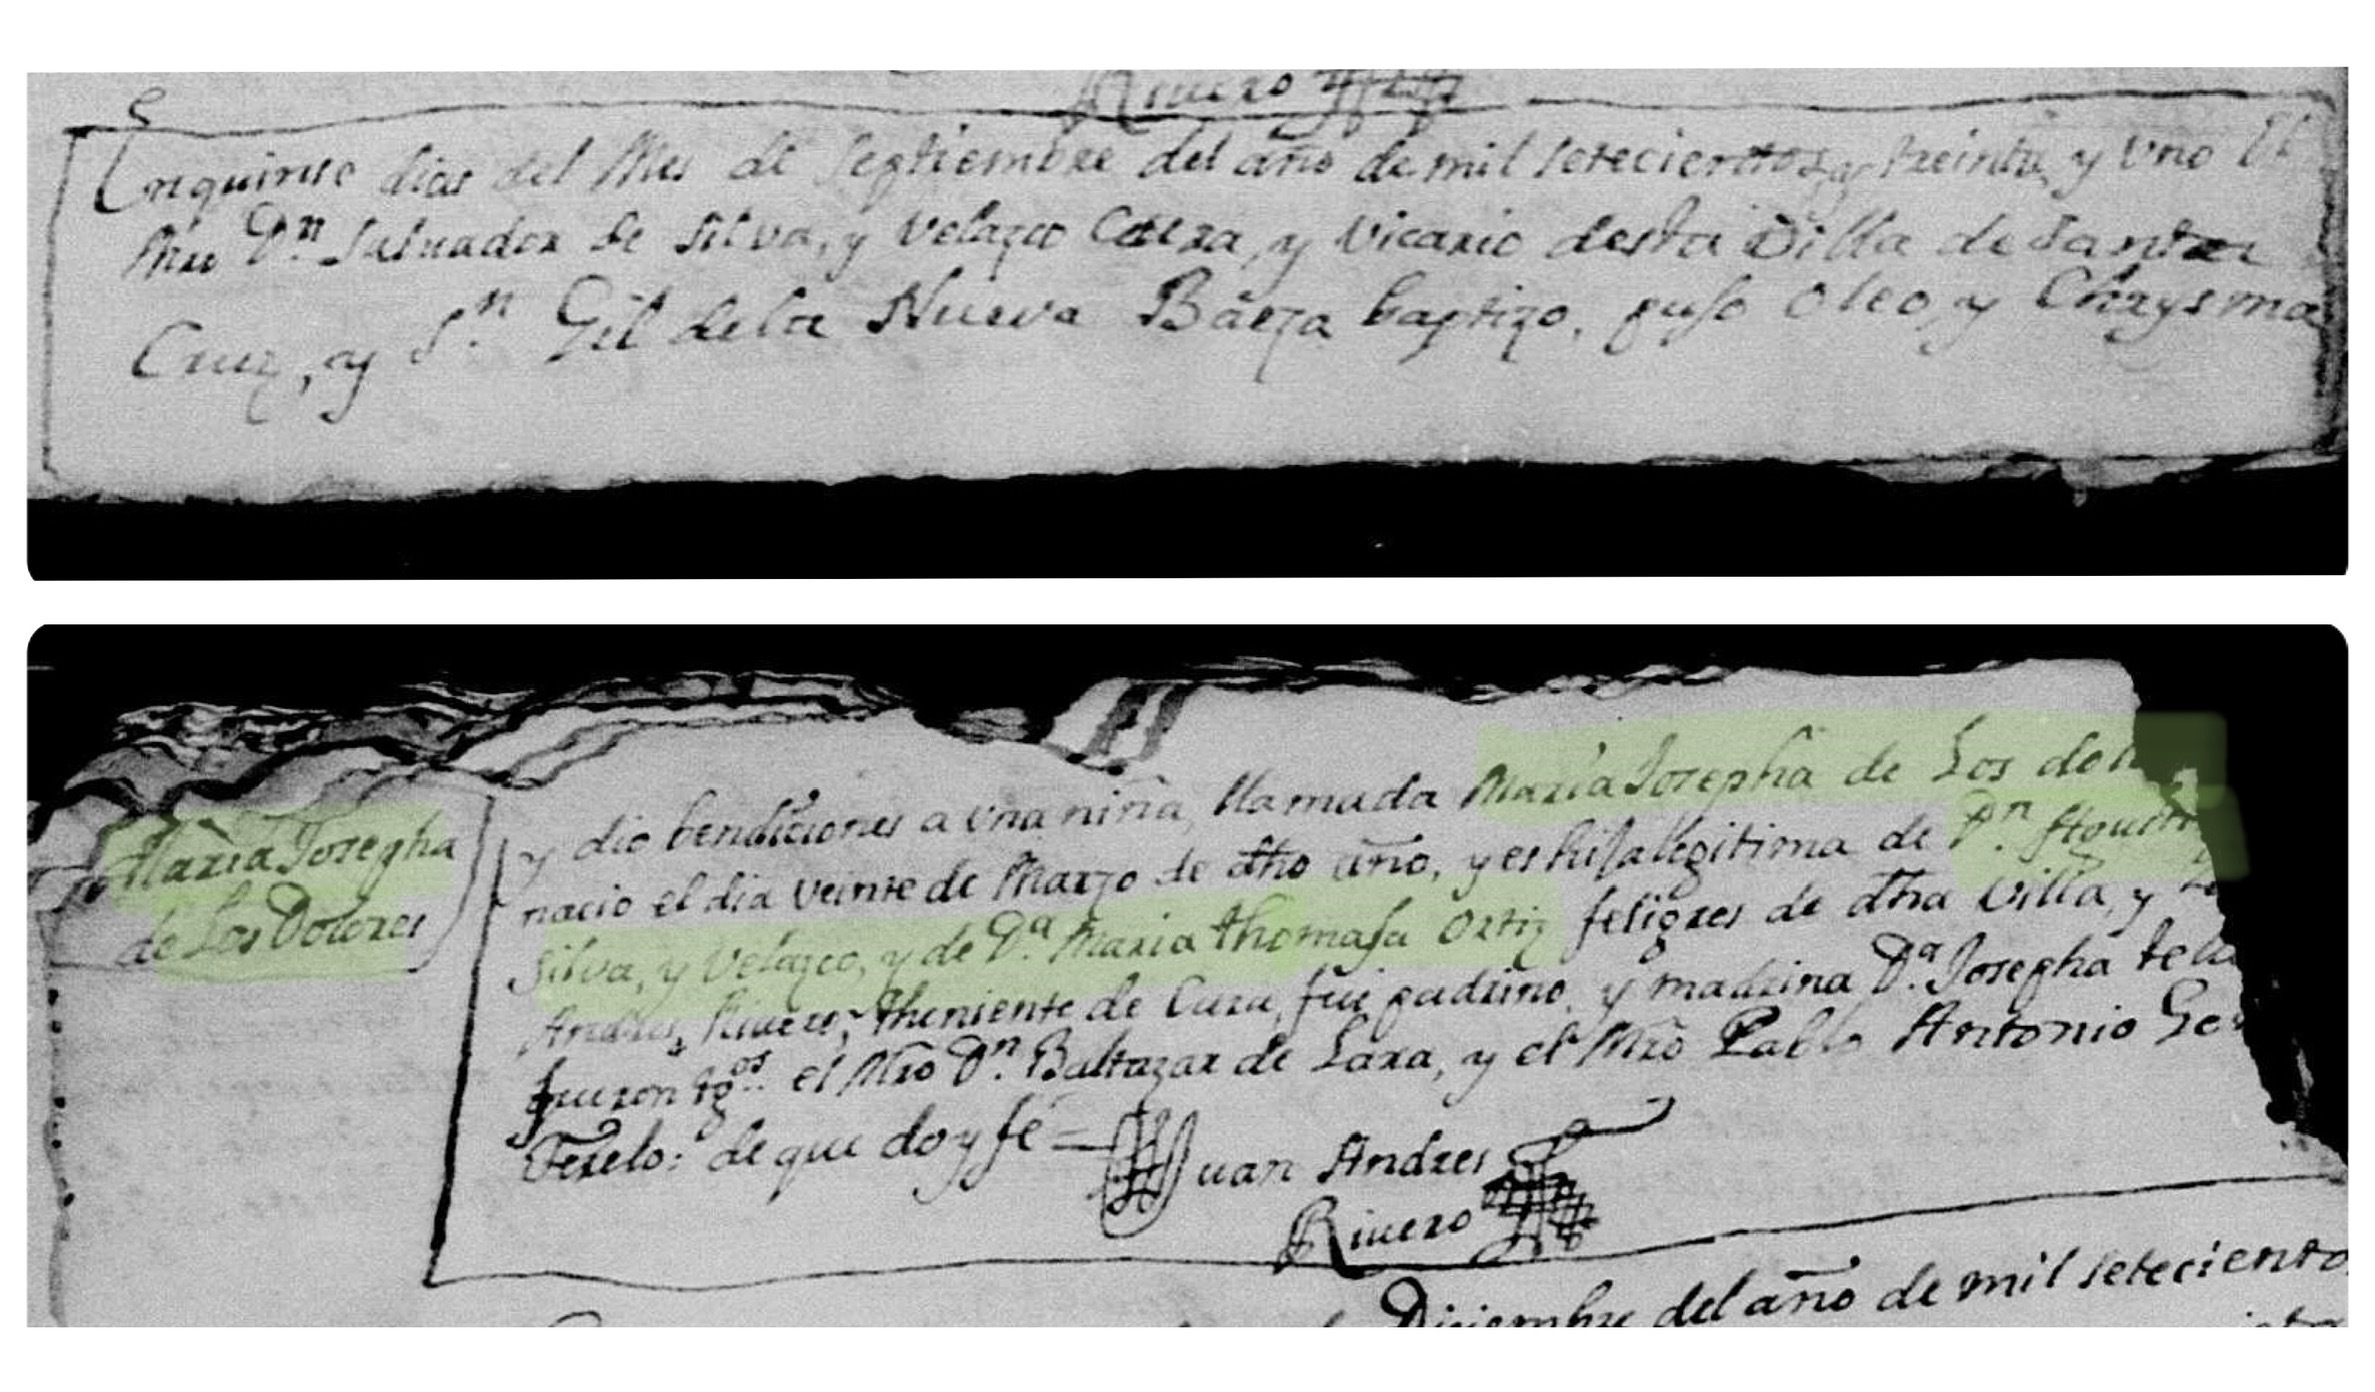 Riuero
En quinse dias del Mes de Septiembre del año de mil setecientos, y treinta, y uno El
Mro Dn. Saluador de Silva, y Velazco Cura, y Vicario desta Villa de Santa
Cruz, y Sn. Gil dela Nueva Baeza baptizo, puso Oleo, y Chrysma
Maria Josepha
de Los Dolores
y dio bendiciones a vna niña, llamada Maria Josepha de Los dol
nacio el dia veinte de Marzo de dho año, y es hija legitima de Dn. Agusti
Silva, y Velazco, y de Da. Maria Thomasa Ortiz feligres de dha Villa, y
Andres, Riuero, Theniente de Cura, fue padrino, y madrina Da. Josepha de la
fueron tgos. el Mro Dn. Baltazar de Lara, y el Mro Pablo Antonio
Terelo: de que doy fe =
Juan Andres
Riuero
Diciembre del año de mil seteciento